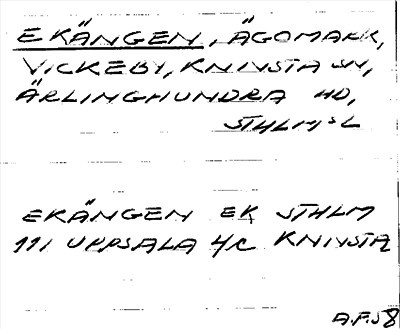 EKÄNGEN, ÄGOMARK,
VICKEBY, KNIVSTA SN,
ÄRLINGHUNDRA HD,
STHLMS L
EKÄNGEN EK STHLM
111 UPPSALA 4c KNIVSTA
A.F.58